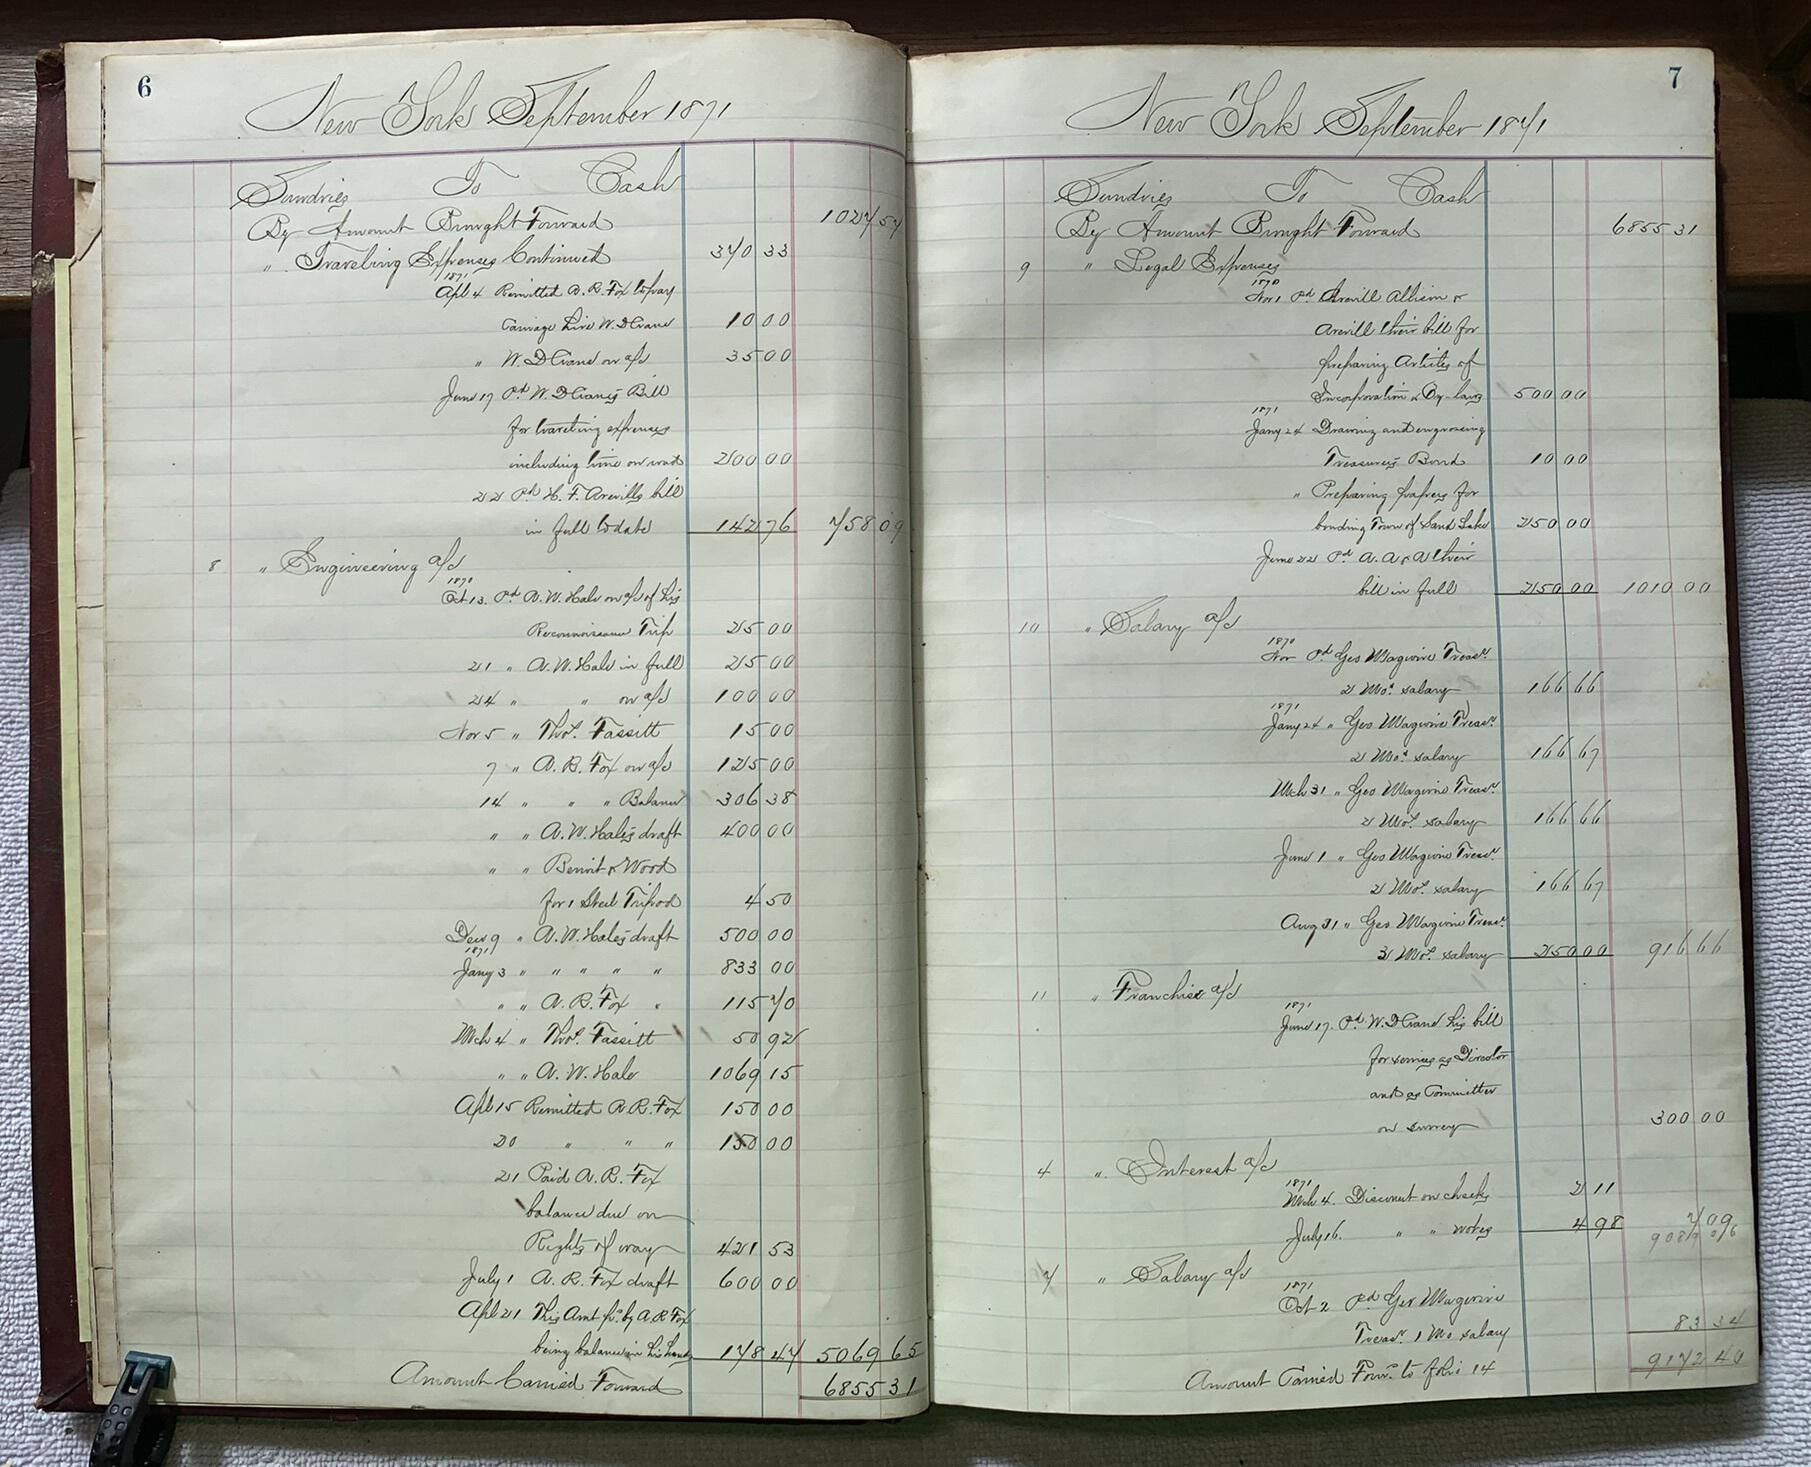 6
New York September 1871
Sundries To Cash
By Amount Brought Forward 1027 57
" Traveling Expenses Continued 370 33
1871
Apl 4 Remitted A. R. Fox to pay
Carriage hire W. D Crane 10 00
" W. D Crane on a/c 35 00
June 17 Pd W. D Crane's Bill
for traveling expenses
including time on road 200 00
22 Pd H. F. Averills bill
in full to date 142 76 758 09
8 " Engineering a/c
1870
Oct 13. Pd A. W. Hale on a/c of his
Reconnoisance Trip 25 00
21 " A. W. Hale in full 25 00
24 " " on a/c 100 00
Nov 5 " Thos. Fassitt 15 00
7 " A. R. Fox on a/c 125 00
14 " " " Balance 306 38
" " A. W. Hale's draft 400 00
" " Benoit & Wood
for 1 Steel Tripod 4 50
Decr 9 " A. W. Hale's draft 500 00
1871
Jany 3 " " " " " 833 00
" " A. R. Fox " 115 70
Mch 4 " Thos. Fassitt 50 92
" " A. W. Hale 1069 15
Apl 15 Remitted A. R. Fox 150 00
20 " " " 150 00
21 Paid A. R. Fox
balance due on
Rights of way 421 53
July 1 A. R. Fox draft 600 00
Apl 21 This Amt pd. by A. R Fox
being balance in his hands 178 47 5069 65
Amount Carried Forward 6855 31
7
New York September 1871
Sundries To Cash
By Amount Brought Forward 6855 31
9 " Legal Expenses
1870
Nov 1 Pd Averill Allison &
Averill their bill for
preparing Articles of
Incorporation & By-laws 500 00
1871
Jany 24 Drawing and engrossing
Treasurer's Bond 10 00
" Preparing papers for
bonding Town of Sand Lake 250 00
June 22 Pd A. A & A their
bill in full 250 00 1010 00
10 " Salary a/c
1870
Nov Pd Geo Magivine Treasr.
2 Mos. salary 166 66
1871
Jany 24 " Geo Magivine Treasr.
2 Mos. salary 166 67
Mch 31 " Geo Magivine Treasr.
2 Mos. salary 166 66
June 1 " Geo Magivine Treasr.
2 Mos. salary 166 67
Aug 31 " Geo. Magivine Treasr.
3 Mos. salary 250 00 916 66
11 " Franchise a/c
1871
June 17. Pd W. D Crane his bill
for services as Director
and as Committee
on survey 300 00
4 " Interest a/c
1871
Mch 4. Discount on checks 2 11
July 16. " " notes 4 98 7 09
9089 06
7 " Salary a/c
1871
Oct 2 Pd Geo Magivine
Treasr. 1 Mo salary 83 34
9172 40
Amount Carried Forwd. to folio 14